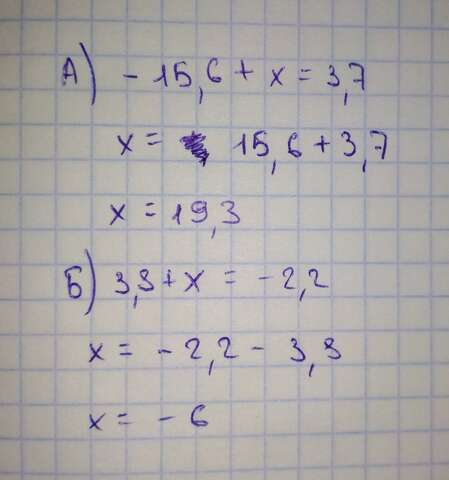 А) - 15,6 + x = 3,7
x = 15,6 + 3,7
x = 19,3
Б) 3,8 + x = - 2,2
x = - 2,2 - 3,8
x = - 6